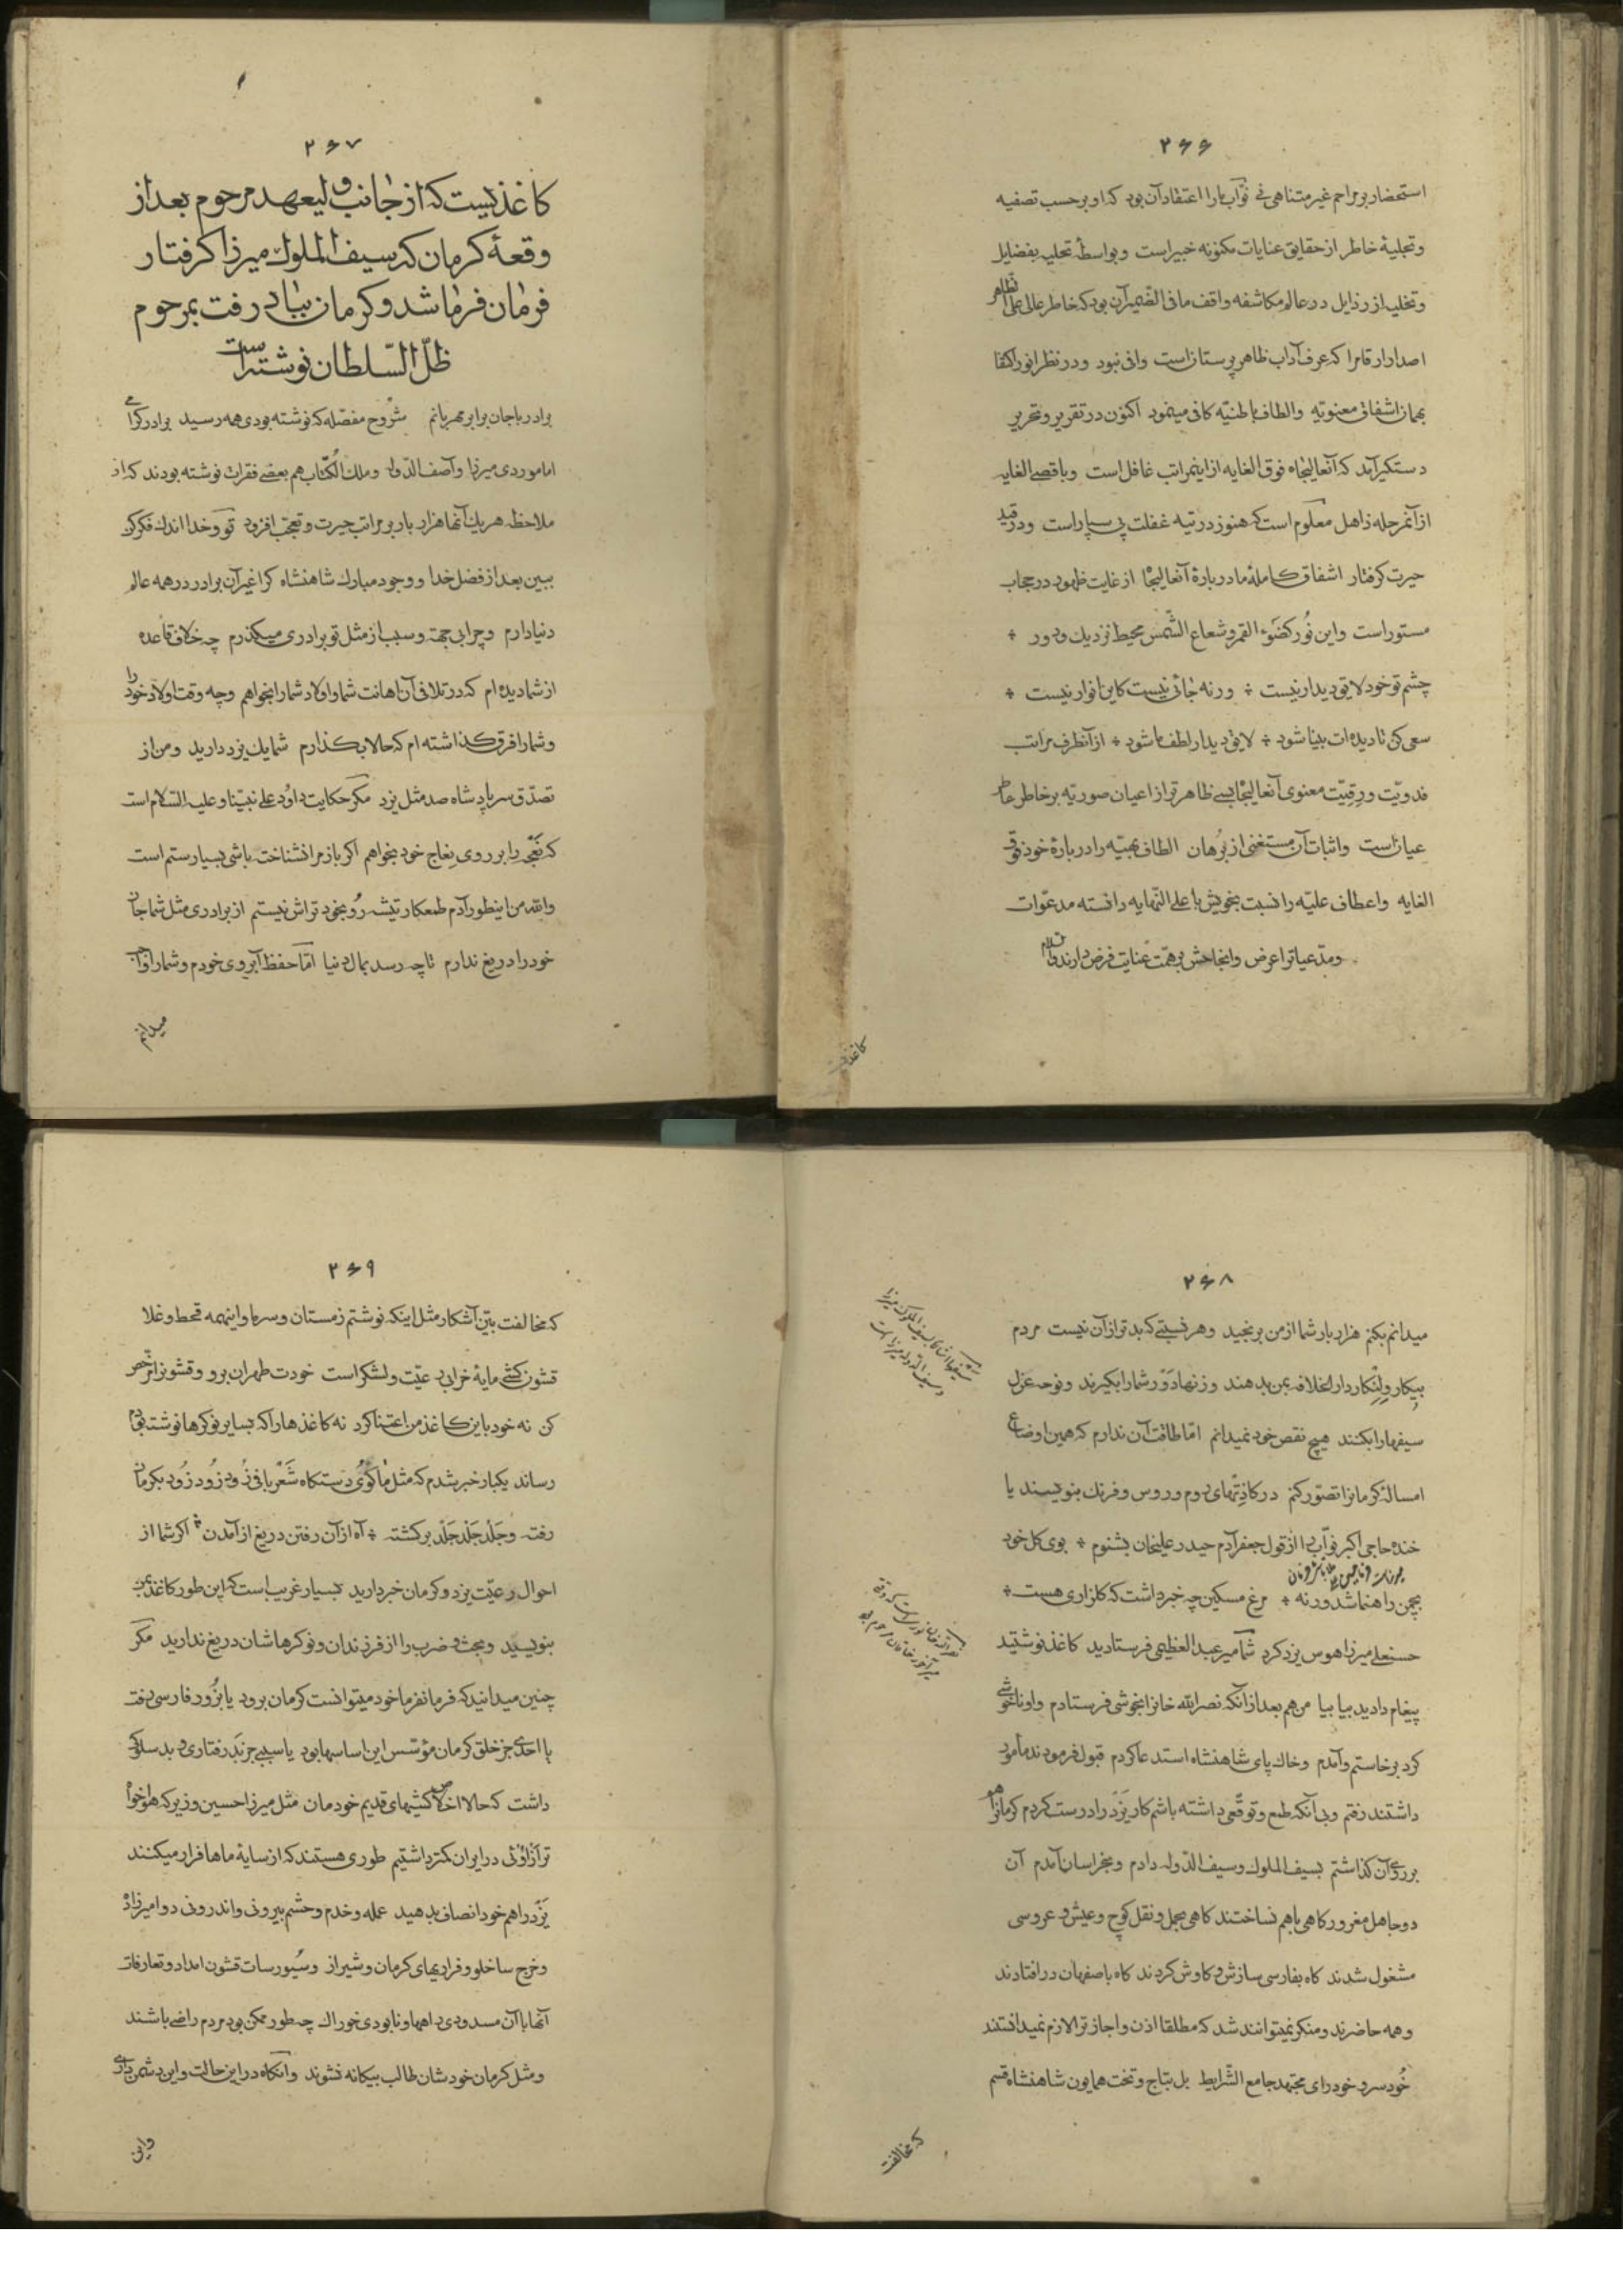 ۲۶۶
استحضار بر مراحم غیر متناهی نی نواب ما را اعتقاد آن بود که او بر حسب تصفیه
و تجلیهٔ خاطر از حقایق عنایات مکنونه خبیر است و بواسطهٔ تحلیه بفضایل
و تخلیه از رذایل در عالم مکاشفه واقف ما فی الضمیر آن بود که خاطر علی اعلی تظاهر
اصدار ارقام را که عرف آداب ظاهر پرستان است وافی نبود و در نظر انور اکتفا
بهمان اشفاق معنویّه و الطاف باطنیّه کافی مینمود اکنون در تقریر و تحریر
دستگیر آمد که آنعالیجاه فوق الغایه از اینمراتب غافل است و باقصی الغایه
از آنمرحله ذاهل معلوم است که هنوز در تیه غفلت پی سپار است و در قید
حیرت گرفتار اشفاق کاملهٔ ما در بارهٔ آنعالیجاه از غایت ظهور در حجاب
مستور است و این نُور کضَوء القمر و شعاع الشّمس محیط نزدیك و دور ÷
چشم تو خود لایق دیدار نیست ÷ ورنه جائی نیست کاین انوار نیست ÷
سعی کن تا دیده‌ات بینا شود ÷ لایق دیدار لطف ما شود ÷ از آنطرف مراتب
فدویّت و رِقیّت معنوی آنعالیجاه بسی ظاهر تر از اعیان صوریّه بر خاطر ما
عیان است و اثبات آن مستغنی از بُرهان الطاف بهیّه را در بارهٔ خود فوق
الغایه و اعطاف علیّه را نسبت بخویش باعلی النّهایه دانسته مدعوّات
و مدّعیات را عرض و انجاحش بر همّت عنایت فرض دارند والسلام
کاغذیست
۲۶۷
کاغذیست که از جانب ولیعهد مرحوم بعد از
وقعهٔ کرمان که سیف الملوك میرزا گرفتار
فرمان فرما شد و کرمان بباد رفت بمرحوم
ظلّ السّلطان نوشته است
برادر با جان برابر مهربانم مشروح مفصّله که نوشته بودی همه رسید برادر گرامی
امام ویردی میرزا و آصف الدّوله و ملك الکتّاب هم بعضی فقرات نوشته بودند که از
ملاحظه هریك آنها هزار بار بر مراتب حیرت و تعجّب افزود تو و خدا اندك فکر کن
ببین بعد از فضل خدا و وجود مبارك شاهنشاه کرا غیر آن برادر در همه عالم
دنیا دارم و چرا بی جهة و سبب از مثل تو برادری میگذرم چه خلاف قاعده
از شما دیده‌ام که در تلافی آن اهانت شما و اولاد شما را بخواهم و چه وقت اولاد خود را
و شما را فرق گذاشته‌ام که حالا بگذارم شما یك یزد دارید و من از
تصدّق سر پادشاه صد مثل یزد مگر حکایت داوُد علی نبیّنا و علیه السّلام است
که نَعْجَه را بر روی نِعاج خود بخواهم اگر باز مرا نشناخته باشی بسیار ستم است
والله من اینطور آدم طمعکار تیشه رُو بخود تراش نیستم از برادری مثل شما جان
خود را دریغ ندارم تا چه رسد بمال دنیا امّا حفظ آبروی خودم و شما را واجب
میدانم
۲۶۸
میدانم بکنم هزار بار شما از من برنجید و هر نسبتی که بدتر از آن نیست مردم
بیکار و لِنْگار دار الخلافه بمن بدهند و زنها دَوْر شما را بگیرند و نوحه عزل
سیفها را بکنند هیچ نقص خود نمیدانم امّا طاقت آن ندارم که همین اوضاع
امسالهٔ کرمانرا تصوّر کنم در کاذِتْهای روم و روس و فرنك بنویسند یا
خنده حاجی اکبر نوّاب را از قول جعفر آدم حیدر علیخان بشنوم ÷ بوی گل خود
بچمن راهنما شد ورنه ÷ مرغ مسکین چه خبر داشت که گلزاری هست ÷
حسنعلی میرزا هوس یزد کرد شما میر عبدالعظیمی فرستادید کاغذ نوشتید
پیغام دادید بیا بیا من هم بعد از آنکه نصرالله خانرا بخوشی فرستادم و او ناخوشی
کرد برخاستم و آمدم و خاك پای شاهنشاه استدعا کردم قبول فرمودند مأمور
داشتند رفتم و بی آنکه طمع و توقّعی داشته باشم کار یَزْد را درست کردم کرمانرا هم
بر روی آن گذاشتم بسیف الملوك و سیف الدّوله دادم و بخراسان آمدم آن
دو جاهل مغرور گاهی با هم نساختند گاهی بحمل و نقل کوچ و عیش و عروسی
مشغول شدند گاه بفارسی سازش و کاوش کردند گاه باصفهان در افتادند
و همه حاضرند و منکر نمیتوانند شد که مطلقا اذن و اجازت مرا لازم نمیدانستند
خُود سر و خود رای مجتهد جامع الشّرایط بل بتاج و تخت همایون شاهنشاه قسم
که مخالفت
۲۶۹
که مخالفت بیّن آشکار مثل اینکه نوشتم زمستان و سرما و اینهمه قحط و غلا
قشون کشی مایهٔ خرابی رعیّت و لشکر است خودت طهران برو و قشونرا مرخّص
کن نه خود باین کاغذ من اعتنا کرد نه کاغذ ها را که بسایر نوکرها نوشته بودم
رساند یکبار خبر شدم که مثل ماکوُی دستگاه شَعْر بافی زُود زُود زُود بکرمان
رفته و جَلْد جَلْد جَلْد برگشته ÷ آه از آن رفتن دریغ از آمدن ÷ اگر شما از
احوال رعیّت یزد و کرمان خبر دارید بسیار غریب است که این طور کاغذ بمن
بنویسید و بحث و ضرب را از فرزندان و نوکرهاشان دریغ ندارید مگر
چنین میدانید که فرمانفرما خود میتوانست کرمان برود یا بزُور فارسی رفت
یا احدی جز خلق کرمان مؤسّس این اساسها بود یا سببی جز بَد رفتاری و بد سلوکی
داشت که حالا اخلاص کیشهای قدیم خودمان مثل میرزا حسین وزیر که هوا خواه
تر از اوُئی در ایران کمتر داشتیم طوری هستند که از سایهٔ ماها فرار میکنند
یَزْد را هم خود انصاف بدهید عمله و خدم و حشم بیرونی و اندرونی دو امیر زاده
و خرج ساخلو و فراریهای کرمان و شیراز و سُیورسات قشون امداد و تعارفات
آنها با آن مسدودی راهها و نابودی خوراك چه طور ممکن بود مردم راضی باشند
و مثل کرمان خودشان طالب بیگانه نشوند و آنگاه در این حالت و این دشمن داری
و این